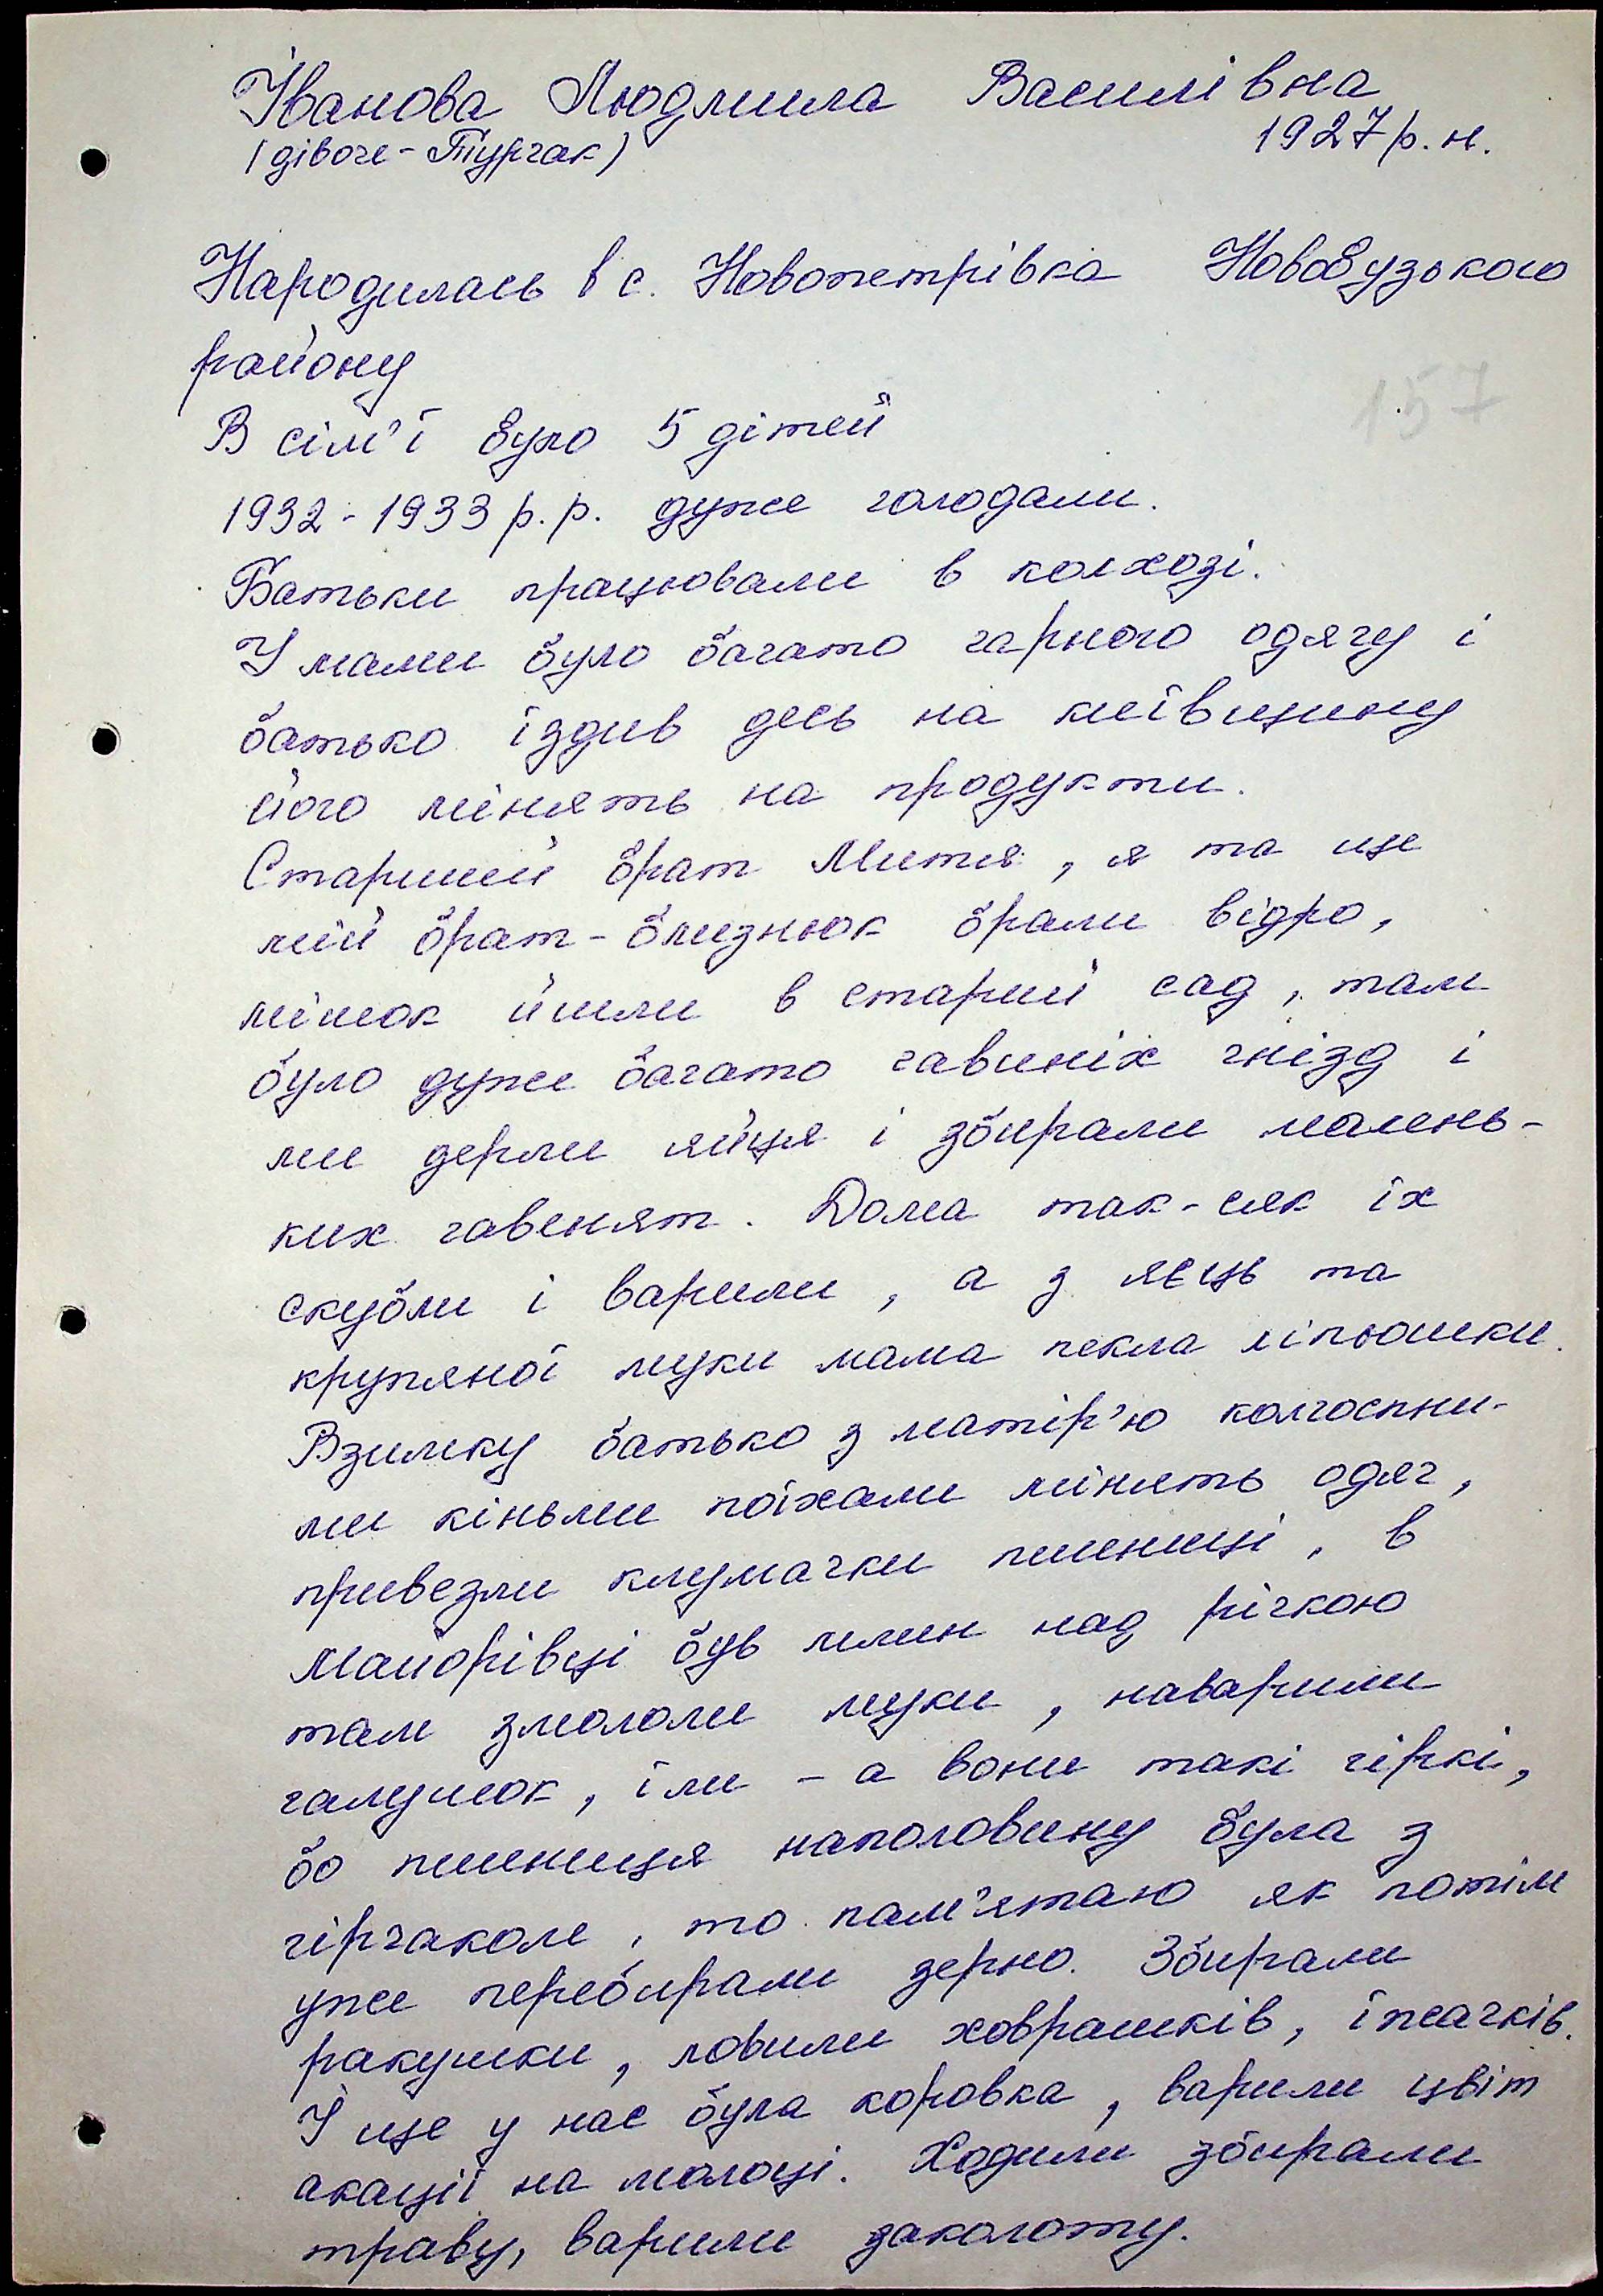 Іванова Людмила Василівна
(дівоче - Турчак) 1927 р. н.
Народилась в с. Новопетрівка Новобузького
району
157
В сім'ї було 5 дітей
1932 - 1933 р. р. дуже голодали.
Батьки працювали в колхозі.
У мами було багато гарного одягу і
батько їздив десь на київщину
його мінять на продукти.
Старший брат Митя, я та ще
мій брат - близнюк брали відро,
мішок йшли в старий сад, там
було дуже багато гавиніх гнізд і
ми дерли яйця і збирали малень-
ких гавенят. Дома так-сяк їх
скубли і варили, а з яєць та
крупяної муки мама пекла ліпьошки.
Взимку батько з матір'ю колгоспни-
ми кіньми поїхали мінять одяг,
привезли клумачки пшениці, в
Майорівці був млин над річкою
там змололи муки, наварили
галушок, їли - а вони такі гіркі,
бо пшениця наполовину була з
гірчаком, то пам'ятаю як потім
уже перебирали зерно. Збирали
ракушки, ловили ховрашків, їжачків.
І ще у нас була коровка, варили цвіт
акації на молоці. Ходили збирали
траву, варили заколоту.